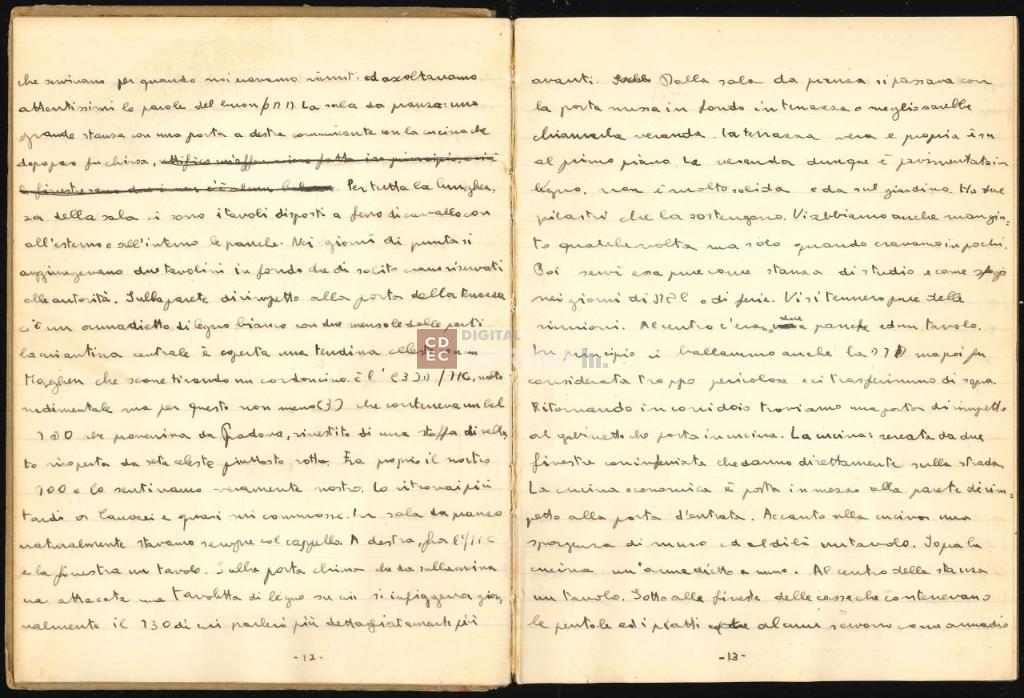 che servivano per quando noi eravamo riuniti ed ascoltavamo
attentissimi le parole del buon הכהן. La sala da pranzo: una
grande stanza con una porta a destra comunicante con la cucina che
dopo poi fu chiusa,
Per tutta la lunghez-
za della sala ci sono i tavoli disposti a ferro di cavallo con
all'esterno e all'interno le panche. Nei giorni di punta si
aggiungevano due tavolini in fondo che di solito erano riservati
alle autorità. Sulla parete dirimpetto alla porta della terrazza
c'è un armadietto di legno bianco con due mensole dalle parti
la miantina centrale è coperta una tendina celeste con un
Maghen che scorre tirando un cordoncino. è l' molto
rudimentale ma per questo non meno che conteneva un bel
ספר che proveniva da Padova, rivestito di una stoffa di vellu
to ricoperta da seta celeste piuttosto rotta. Era proprio il nostro
ספר e lo sentivamo veramente nostro. Lo ritrovai più
tardi a e quasi mi commosse. In sala da pranzo
naturalmente stavamo sempre col cappello. A destra, fra l'
e la finestra un tavolo. Sulla porta chiusa che dà sulla cucina
va attaccata una tavoletta di legno su cui si infiggeva gior-
nalmente il di cui parlerò più dettagliatamente più
- 12 -
avanti. Dalla sala da pranzo si passava con
la porta messa in fondo in terrazza o meglio sarebbe
chiamarla veranda. La terrazza vera e propria è su
al primo piano. La veranda dunque è pavimentata in
legno, non è molto solida e dà sul giardino. Ha due
pilastri che la sostengono. Vi abbiamo anche mangia-
to qualche volta ma solo quando eravamo in pochi.
Poi servì essa pure come stanza di studio e come
nei giorni di o di ferie. Vi si tennero pure delle
riunioni. Al centro c'erano due panche ed un tavolo.
In principio ci ballammo anche la ma poi fu
considerata troppo pericolosa e ci trasferimmo di sopra.
Ritornando in corridoio troviamo una porta dirimpetto
al gabinetto che porta in cucina. La cucina: serrata da due
finestre con inferriata che danno direttamente sulla strada.
La cucina economica è posta in mezzo alla parete dirim-
petto alla porta d'entrata. Accanto alla cucina una
sporgenza di muro ed al di là un tavolo. Sopra la
cucina un'armadietto a muro. Al centro della stanza
un tavolo. Sotto alle fineste delle casse che contenevano
le pentole ed i piatti alcuni servono come armadio
- 13 -
CD
EC
DIGITAL